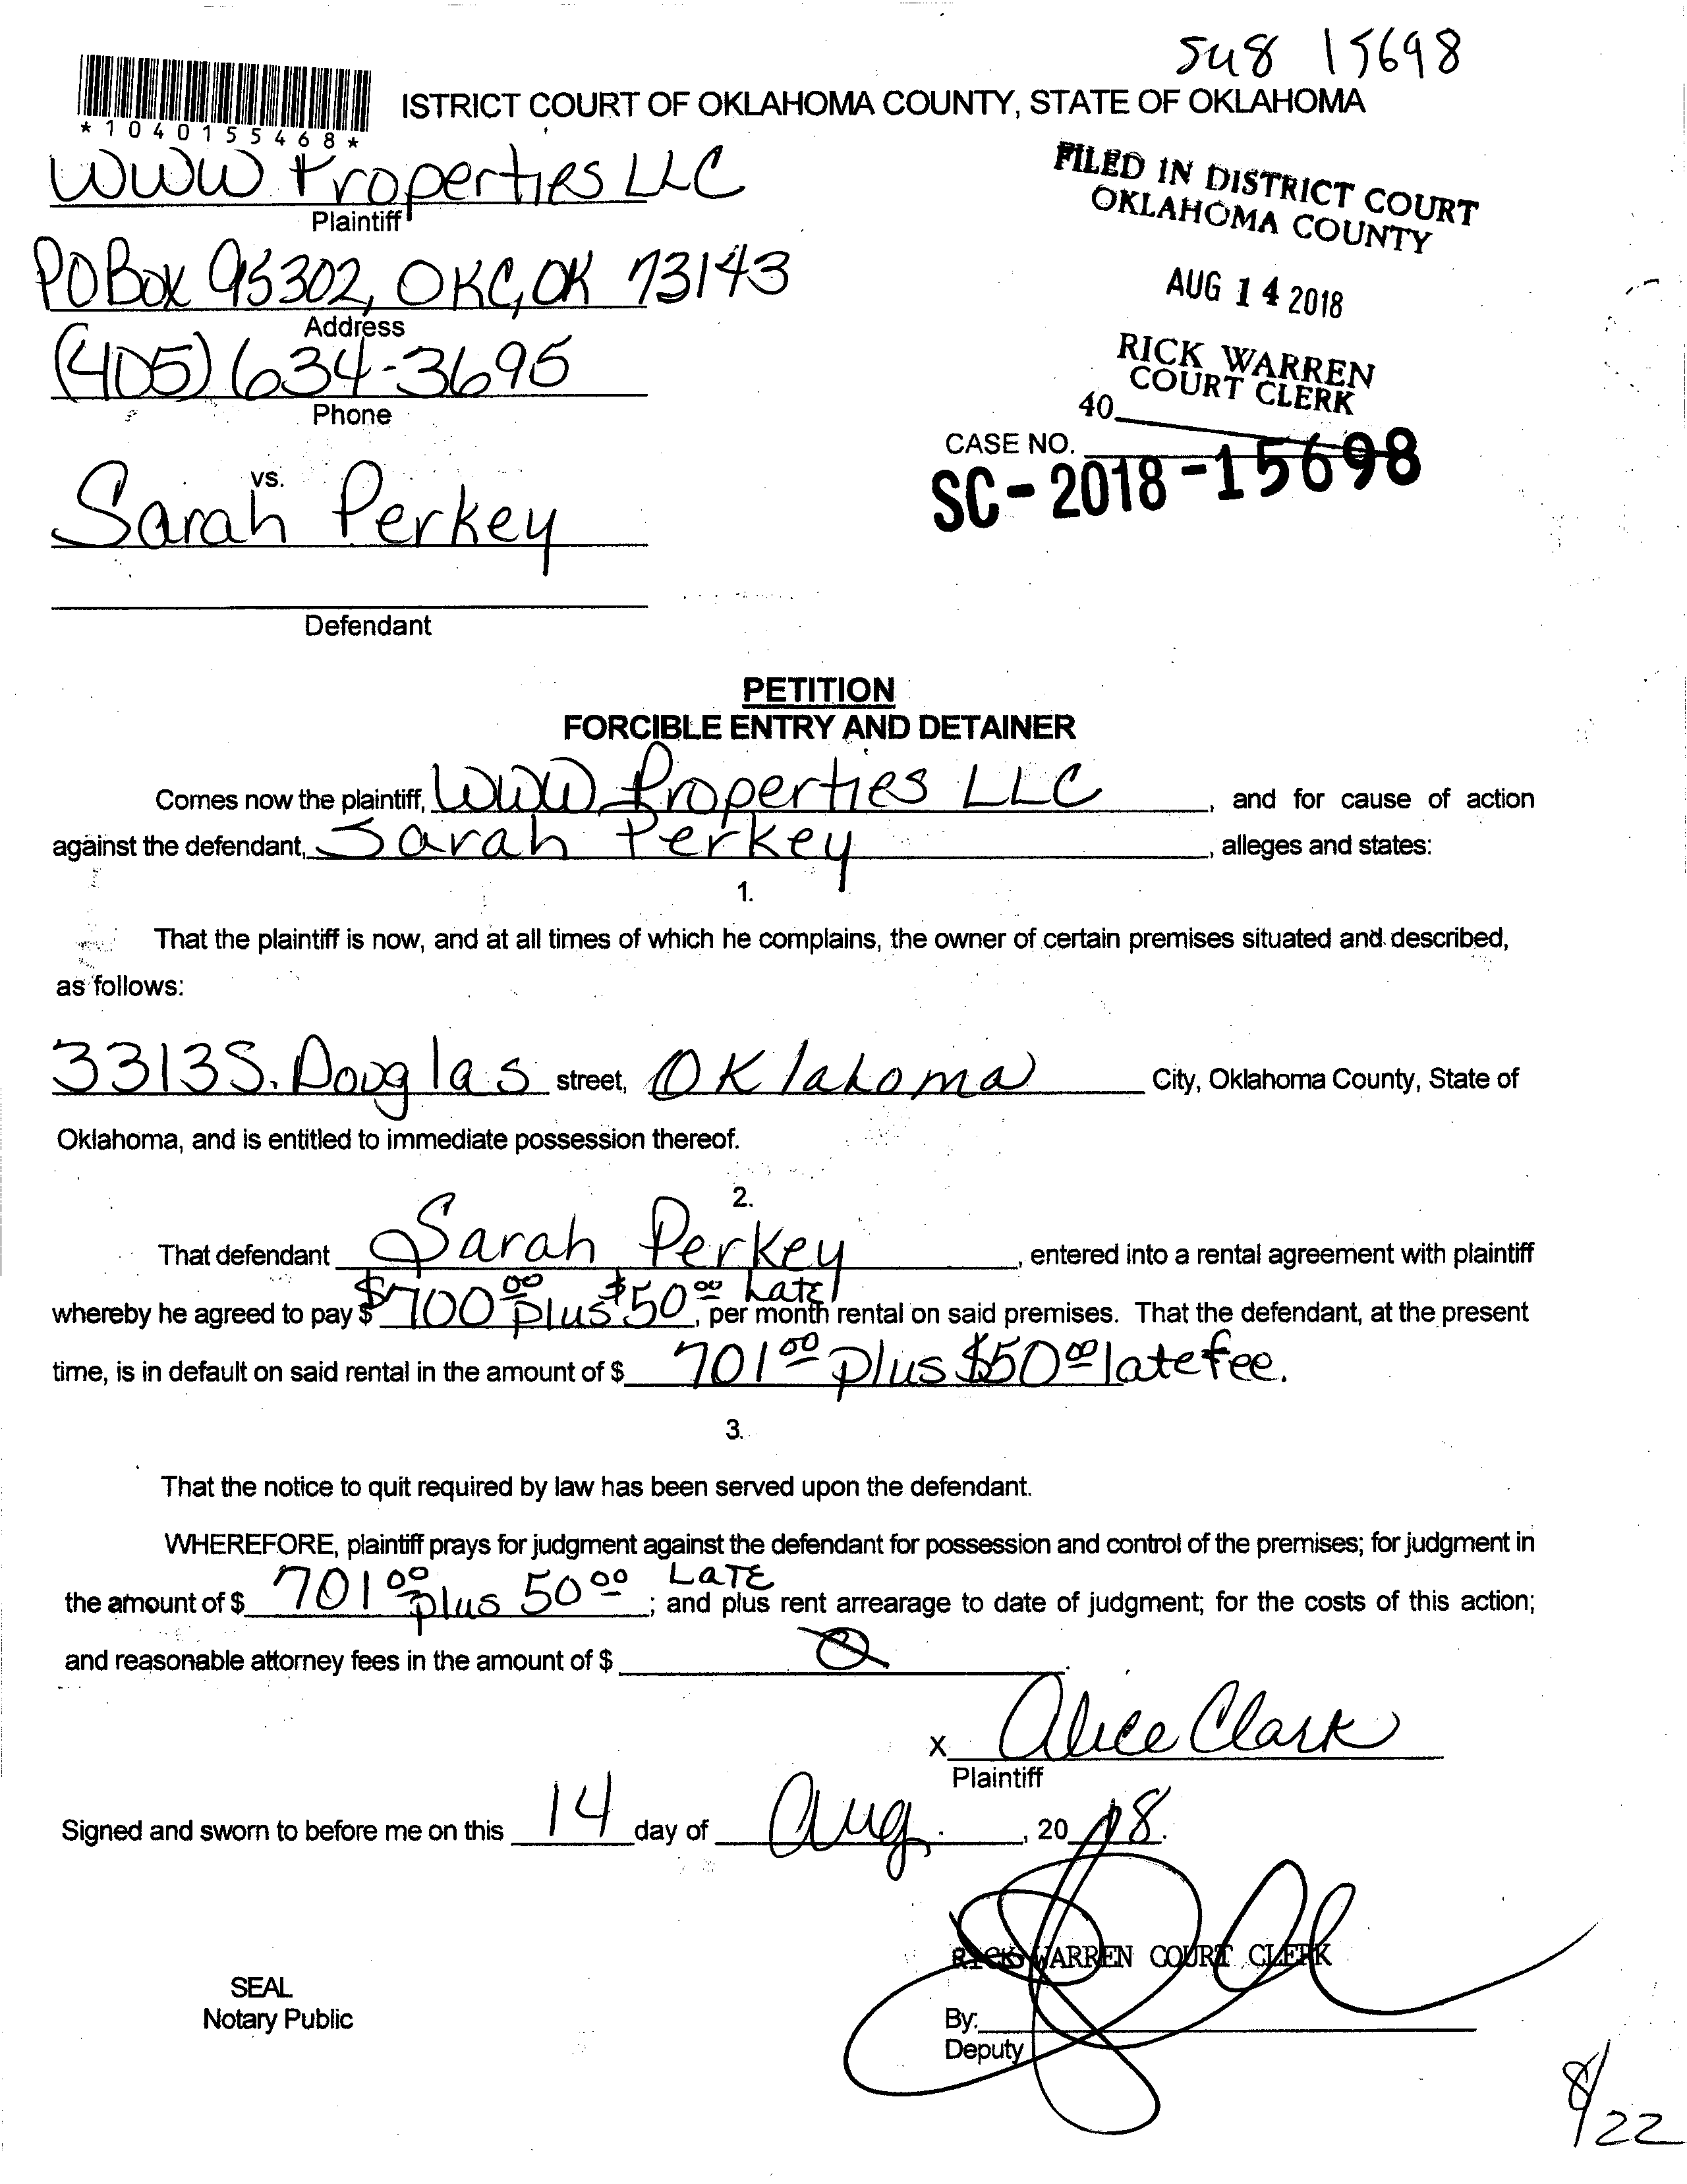 su8 15698
*1040155468*
ISTRICT COURT OF OKLAHOMA COUNTY, STATE OF OKLAHOMA
WWW Properties LLC
Plaintiff
FILED IN DISTRICT COURT
OKLAHOMA COUNTY
PO Box 95302, OKC, OK 73143
Address
AUG 14 2018
(405) 634-3695
Phone
RICK WARREN
COURT CLERK
40
CASE NO.
SC-2018-15698
vs.
Sarah Perkey
Defendant
PETITION
FORCIBLE ENTRY AND DETAINER
Comes now the plaintiff, WWW Properties LLC, and for cause of action
against the defendant, Sarah Perkey, alleges and states:
1.
That the plaintiff is now, and at all times of which he complains, the owner of certain premises situated and described,
as follows:
3313 S. Douglas street, Oklahoma City, Oklahoma County, State of
Oklahoma, and is entitled to immediate possession thereof.
2.
That defendant Sarah Perkey, entered into a rental agreement with plaintiff
whereby he agreed to pay $ $700.00 plus $50.00 Late, per month rental on said premises. That the defendant, at the present
time, is in default on said rental in the amount of $ 701.00 plus $50.00 late fee.
3.
That the notice to quit required by law has been served upon the defendant.
WHEREFORE, plaintiff prays for judgment against the defendant for possession and control of the premises; for judgment in
the amount of $ 701.00 plus 50.00 Late; and plus rent arrearage to date of judgment; for the costs of this action;
and reasonable attorney fees in the amount of $ 0.
X Alice Clark
Plaintiff
Signed and sworn to before me on this 14 day of Aug., 2018.
RICK WARREN COURT CLERK
SEAL
Notary Public
By:
Deputy
8/22